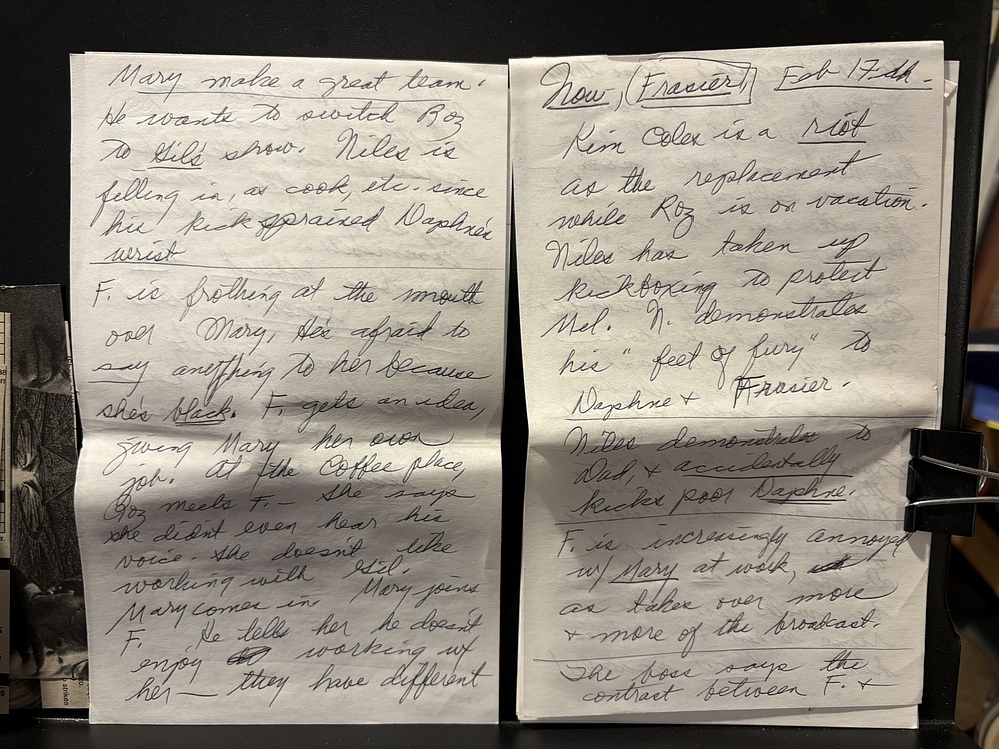 Now, (Frasier) Feb 17th.
Kim Coles is a riot
as the replacement
while Roz is on vacation.
Niles has taken up
kickboxing to protect
Mel. N. demonstrates
his "feet of fury" to
Daphne + Frasier.
Niles demonstrates to
Dad, + accidentally
kicks poor Daphne.
F. is increasingly annoyed
w/ Mary at work,
as takes over more
+ more of the broadcast.
The boss says the
contrast between F. +
Mary make a great team.
He wants to switch Roz
to Gil's show. Niles is
filling in, as cook, etc. since
his kick sprained Daphne's
wrist
F. is frothing at the mouth
over Mary, He's afraid to
say anything to her because
she's black. F. gets an idea,
giving Mary her own
job. At the Coffee place,
Roz meets F. - she says
she didn't even hear his
voice. She doesn't like
working with Gil.
Mary comes in Mary joins
F. He tells her he doesn't
enjoy working w/
her — they have different